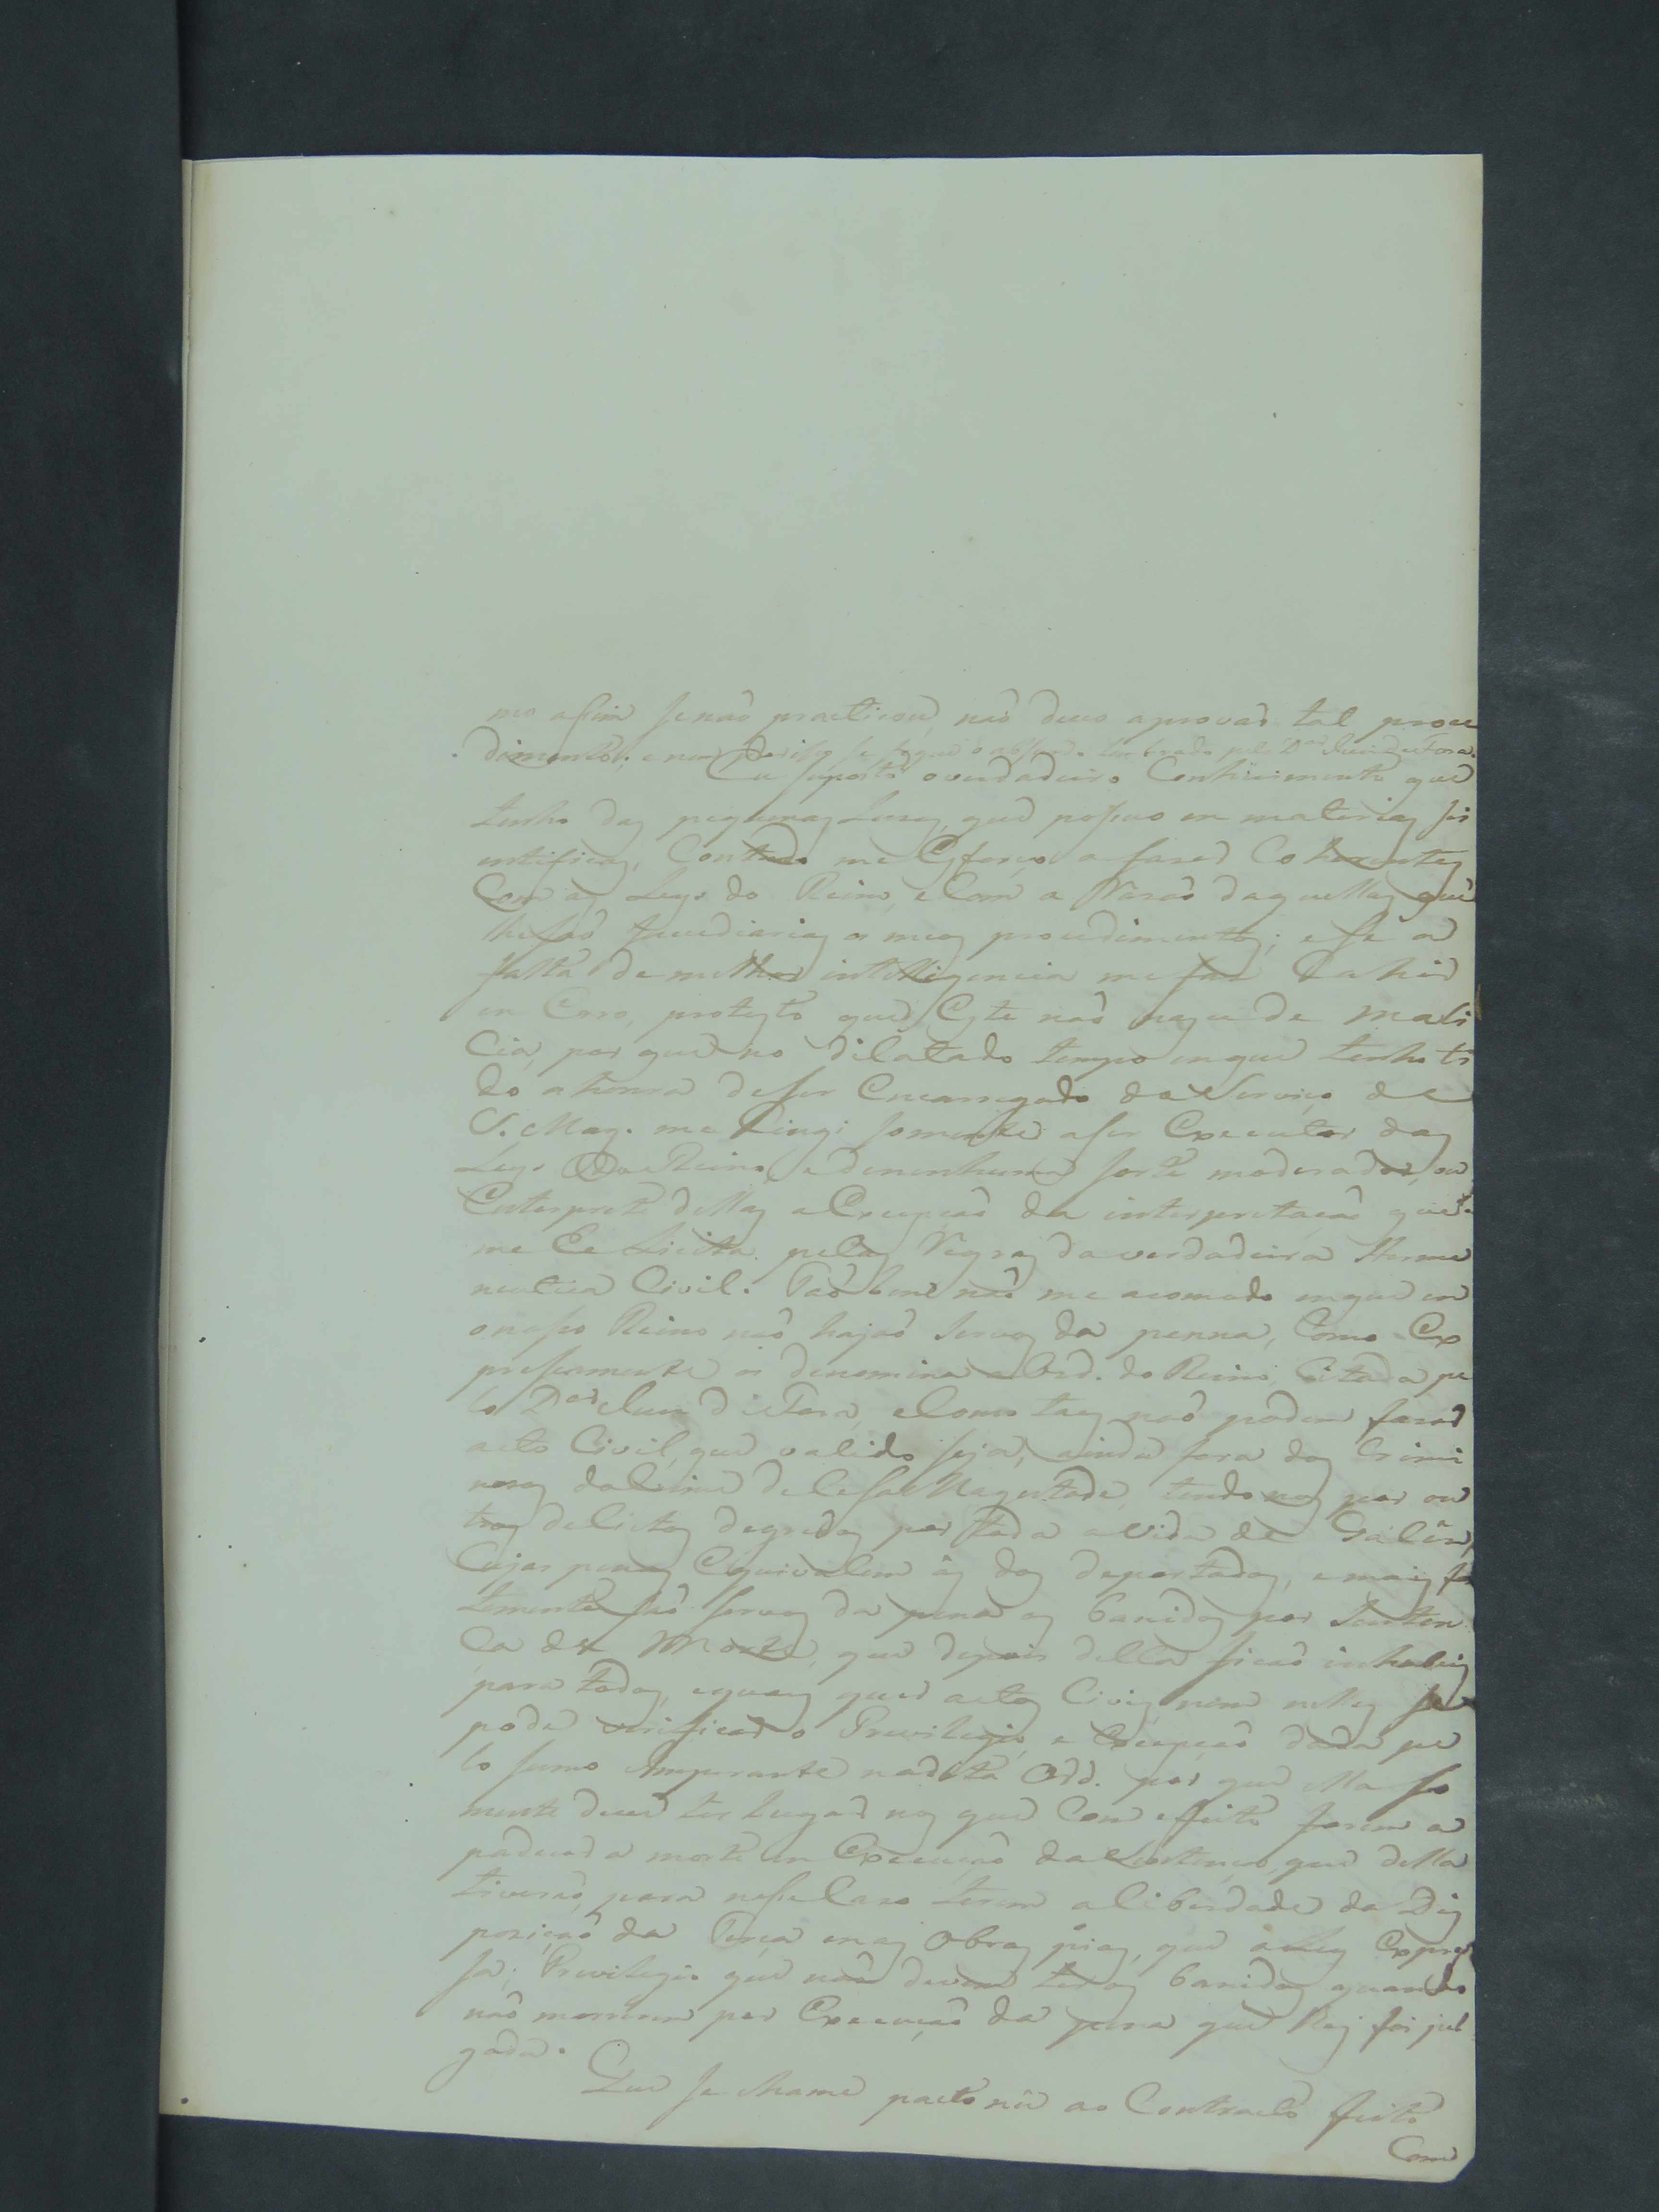 mo assim se naõ practicou, naõ devo aprovar tal proce
dimento; e nem por isso se segue o absurdo lembrado pelo D.or Juiz de Fora.
Eu suposto o verdadeiro Conhecimento que
tenho das piquenas Luzes, que possuo em materias si
entificas, Contudo me Esforço a fazer Coherentes
Com as Leys do Reino, e Com a Razaõ daquellas que
lhe saõ subcidiarias os meos procedimentos; e se a
falta de melhor intelligencia me faz Cahir
em Erro, protesto que Este naõ nasce de mali
cia, por que no dilatado tempo em que tenho ti
do a honra de ser Encarregado do Serviço de
S. Mag. me Cingi somente a ser Executor das
Leys do Reino, e de nenhuma sorte moderador, ou
Enterprete dellas a Excepçaõ da interpretaçaõ que
me he Licita pelas Regras da verdadeira Herme
neutica Civil. Taõ bem naõ me acomodo em que em
o nosso Reino naõ hajaõ servos da penna, Como Ex
pressamente os denomina a Ord. do Reino, Citada pe
lo D.or Juiz de Fora, e Como taes naõ podem fazer
acto Civil, que valido seja, ainda fora dos Crimi
nosos do Crime de Lesa Magestade, tendo nos por ou
tros delictos degredos por toda a vida de Galés,
Cujas penas Equivalem ás dos deportados, e mais
saõ servos da pena os banidos por Senten
ça de Morte, que depois della ficaõ inhabeis
para todos, e quaes quer actos Civis, nem nelles se
pode verificar o Previlegio, e Excepçaõ dada pe
lo sumo Imperante na dita Ord. por que Ella so
mente deve ter lugar nos que Com effeito forem a
padecer a morte em Execuçaõ da Sentença, que della
tiveraõ, para nesse Caso terem a liberdade da Dis
posiçaõ da Terça em as Obras pias, que a Ley Expres
sa; Previlegio que naõ devem ter os banidos quando
naõ morrem por Execuçaõ da pena que lhes foi jul
gada.
Que se chame pacto nú ao Contracto feito
Com